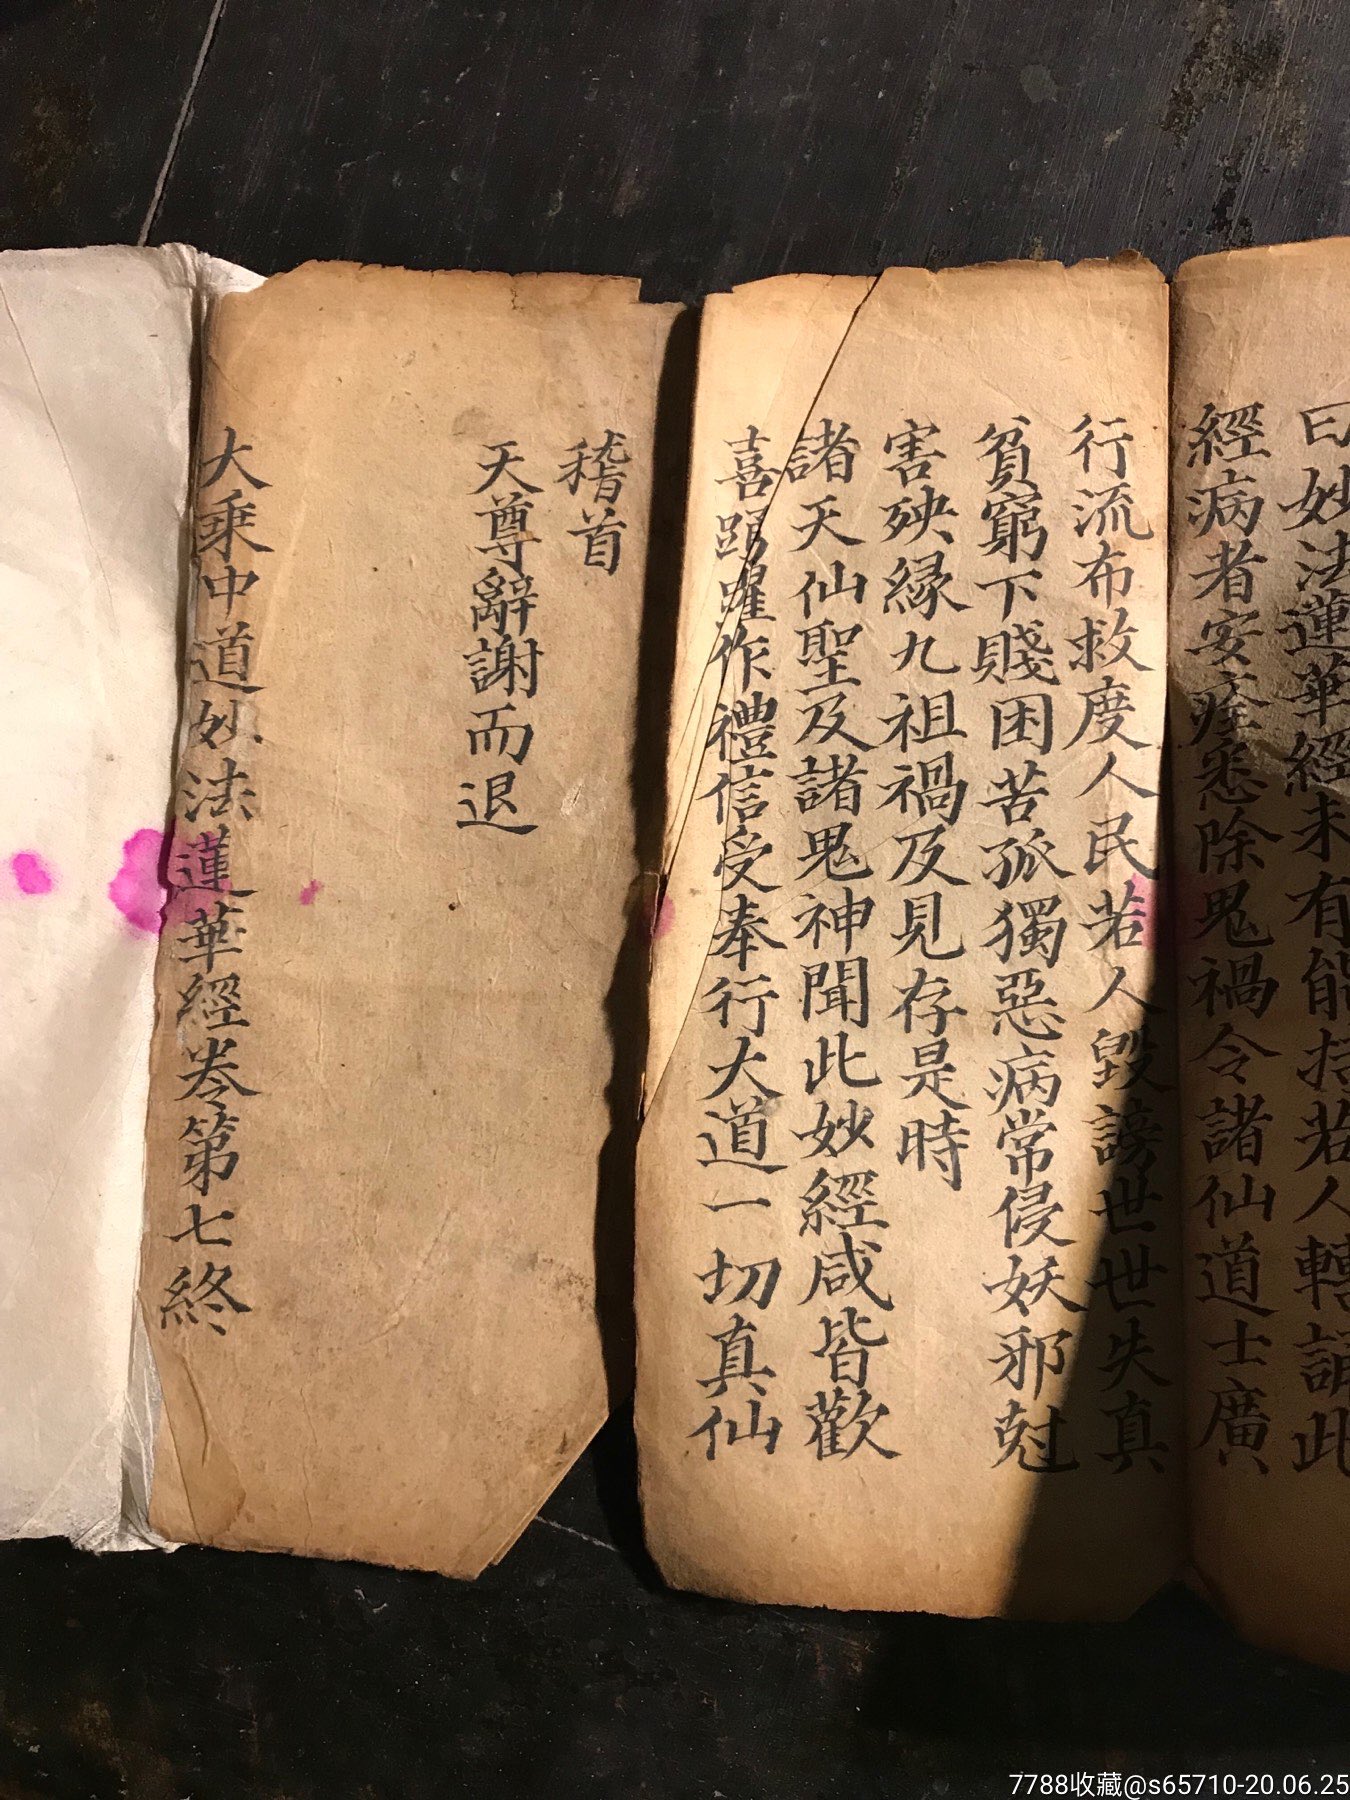 曰妙法蓮華經未有能持若人轉誦此
經病者安痊悉除鬼禍令諸仙道士廣
行流布救度人民若人毀謗世世失真
貧窮下賤困苦孤獨惡病常侵妖邪尅
害殃緣九祖禍及見存是時
諸天仙聖及諸鬼神聞此妙經咸皆歡
喜踴躍作禮信受奉行大道一切真仙
稽首
天尊辭謝而退
大乘中道妙法蓮華經卷第七終
7788收藏@s65710-20.06.25